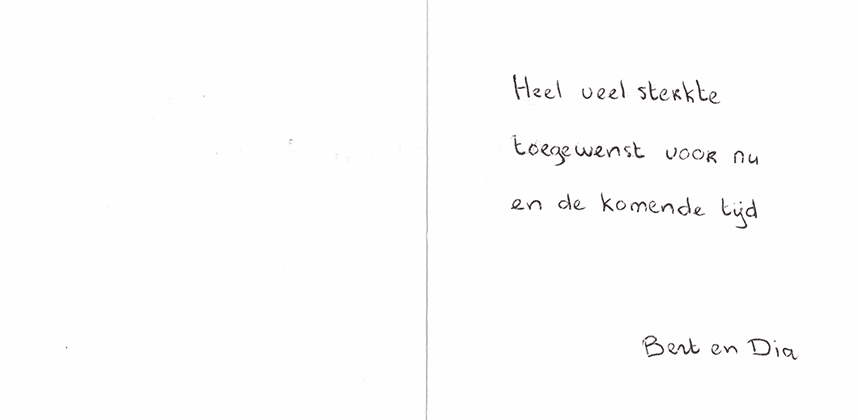 Heel veel sterkte
toegewenst voor nu
en de komende tijd
Bert en Dia